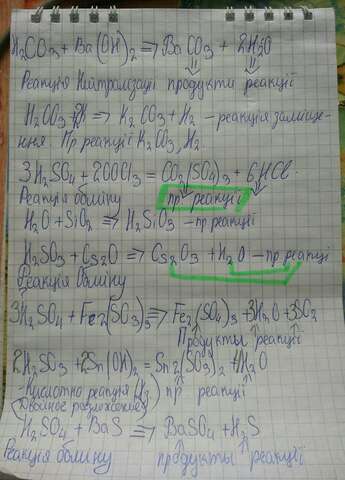 H₂CO₃ + Ba(OH)₂ ⇒ BaCO₃ + 2H₂O
Реакція Нейтралізації продукти реакції
H₂CO₃ + ⇒ K₂CO₃ + H₂ - реакція заміще-
ння. Пр реакції K₂CO₃, H₂.
3H₂SO₄ + 2COCl₃ = CO₂(SO₄)₃ + 6HCl.
Реакція обміну пр реакції
H₂O + SiO₂ ⇒ H₂SiO₃ - пр реакції
H₂SO₃ + Cs₂O ⇒ Cs₂ O₃ + H₂O - пр реакці
Реакція обміну
3H₂SO₄ + Fe₂(SO₃)₃ ⇒ Fe₂(SO₄)₃ + 3H₂O + 3SO₂
Продукты реакції
2H₂SO₃ + 2Sn(OH)₂ = Sn₂(SO₃)₂ + 4H₂O
-Кислотно реакція пр реакції
(Двойное разложение)
H₂SO₄ + BaS ⇒ BaSO₄ + H₂S
Реакція обміну продукты реакції